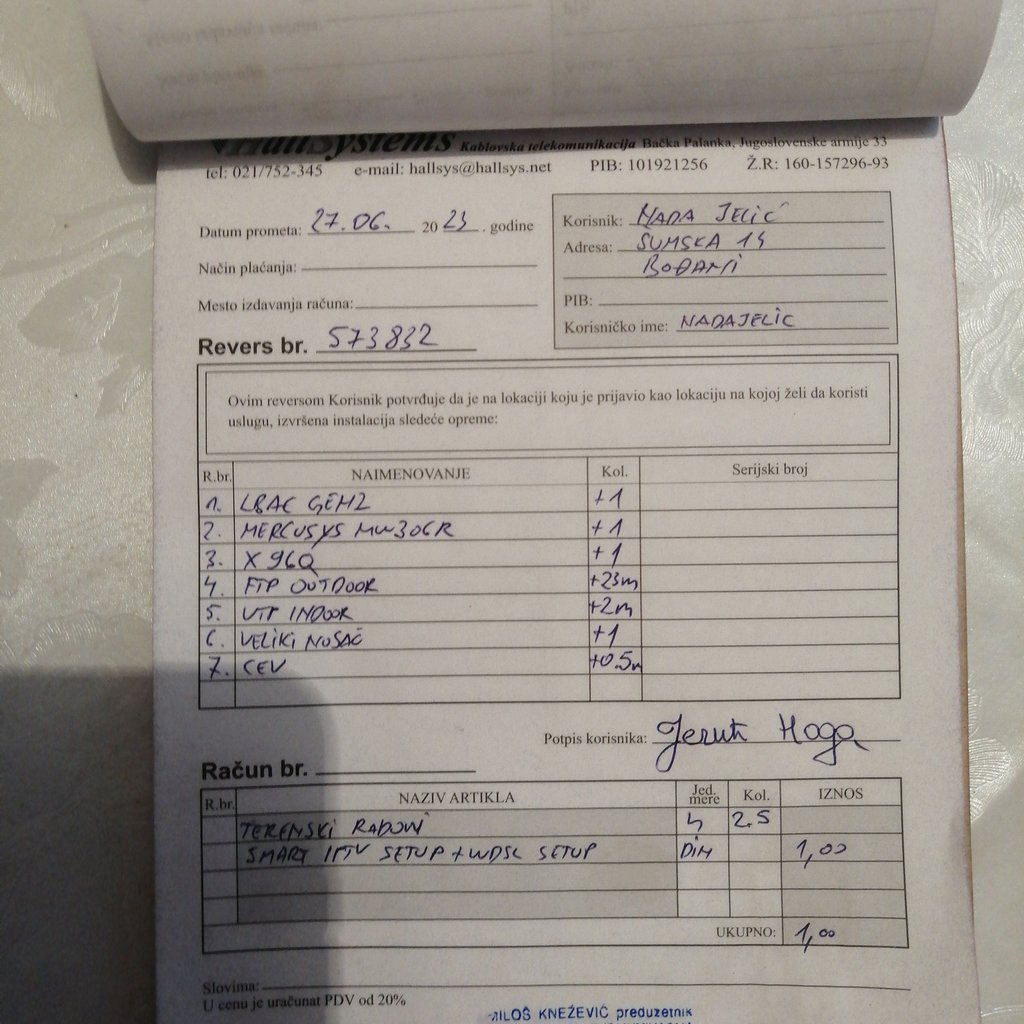 HallSystems Kablovska telekomunikacija Bačka Palanka, Jugoslovenske armije 33
tel: 021/752-345 e-mail: hallsys@hallsys.net PIB: 101921256 Ž.R: 160-157296-93
Datum prometa: 27.06. 2023. godine
Način plaćanja:
Mesto izdavanja računa:
Revers br. 573832
Korisnik: NADA JELIĆ
Adresa: SUMSKA 14
BOĐANI
PIB:
Korisničko ime: NADAJELIC
Ovim reversom Korisnik potvrđuje da je na lokaciji koju je prijavio kao lokaciju na kojoj želi da koristi
uslugu, izvršena instalacija sledeće opreme:
R.br. NAIMENOVANJE Kol. Serijski broj
1. LBAC GEN2 +1
2. MERCUSYS MW306R +1
3. X96Q +1
4. FTP OUTDOOR +23m
5. UTP INDOOR +2m
6. VELIKI NOSAČ +1
7. CEV +0.5m
Potpis korisnika:
Račun br.
R.br. NAZIV ARTIKLA Jed. mere Kol. IZNOS
TERENSKI RADOVI h 2.5
SMART IPTV SETUP + WDSL SETUP DIN 1,00
UKUPNO: 1,00
Slovima:
U cenu je uračunat PDV od 20%
MILOŠ KNEŽEVIĆ preduzetnik